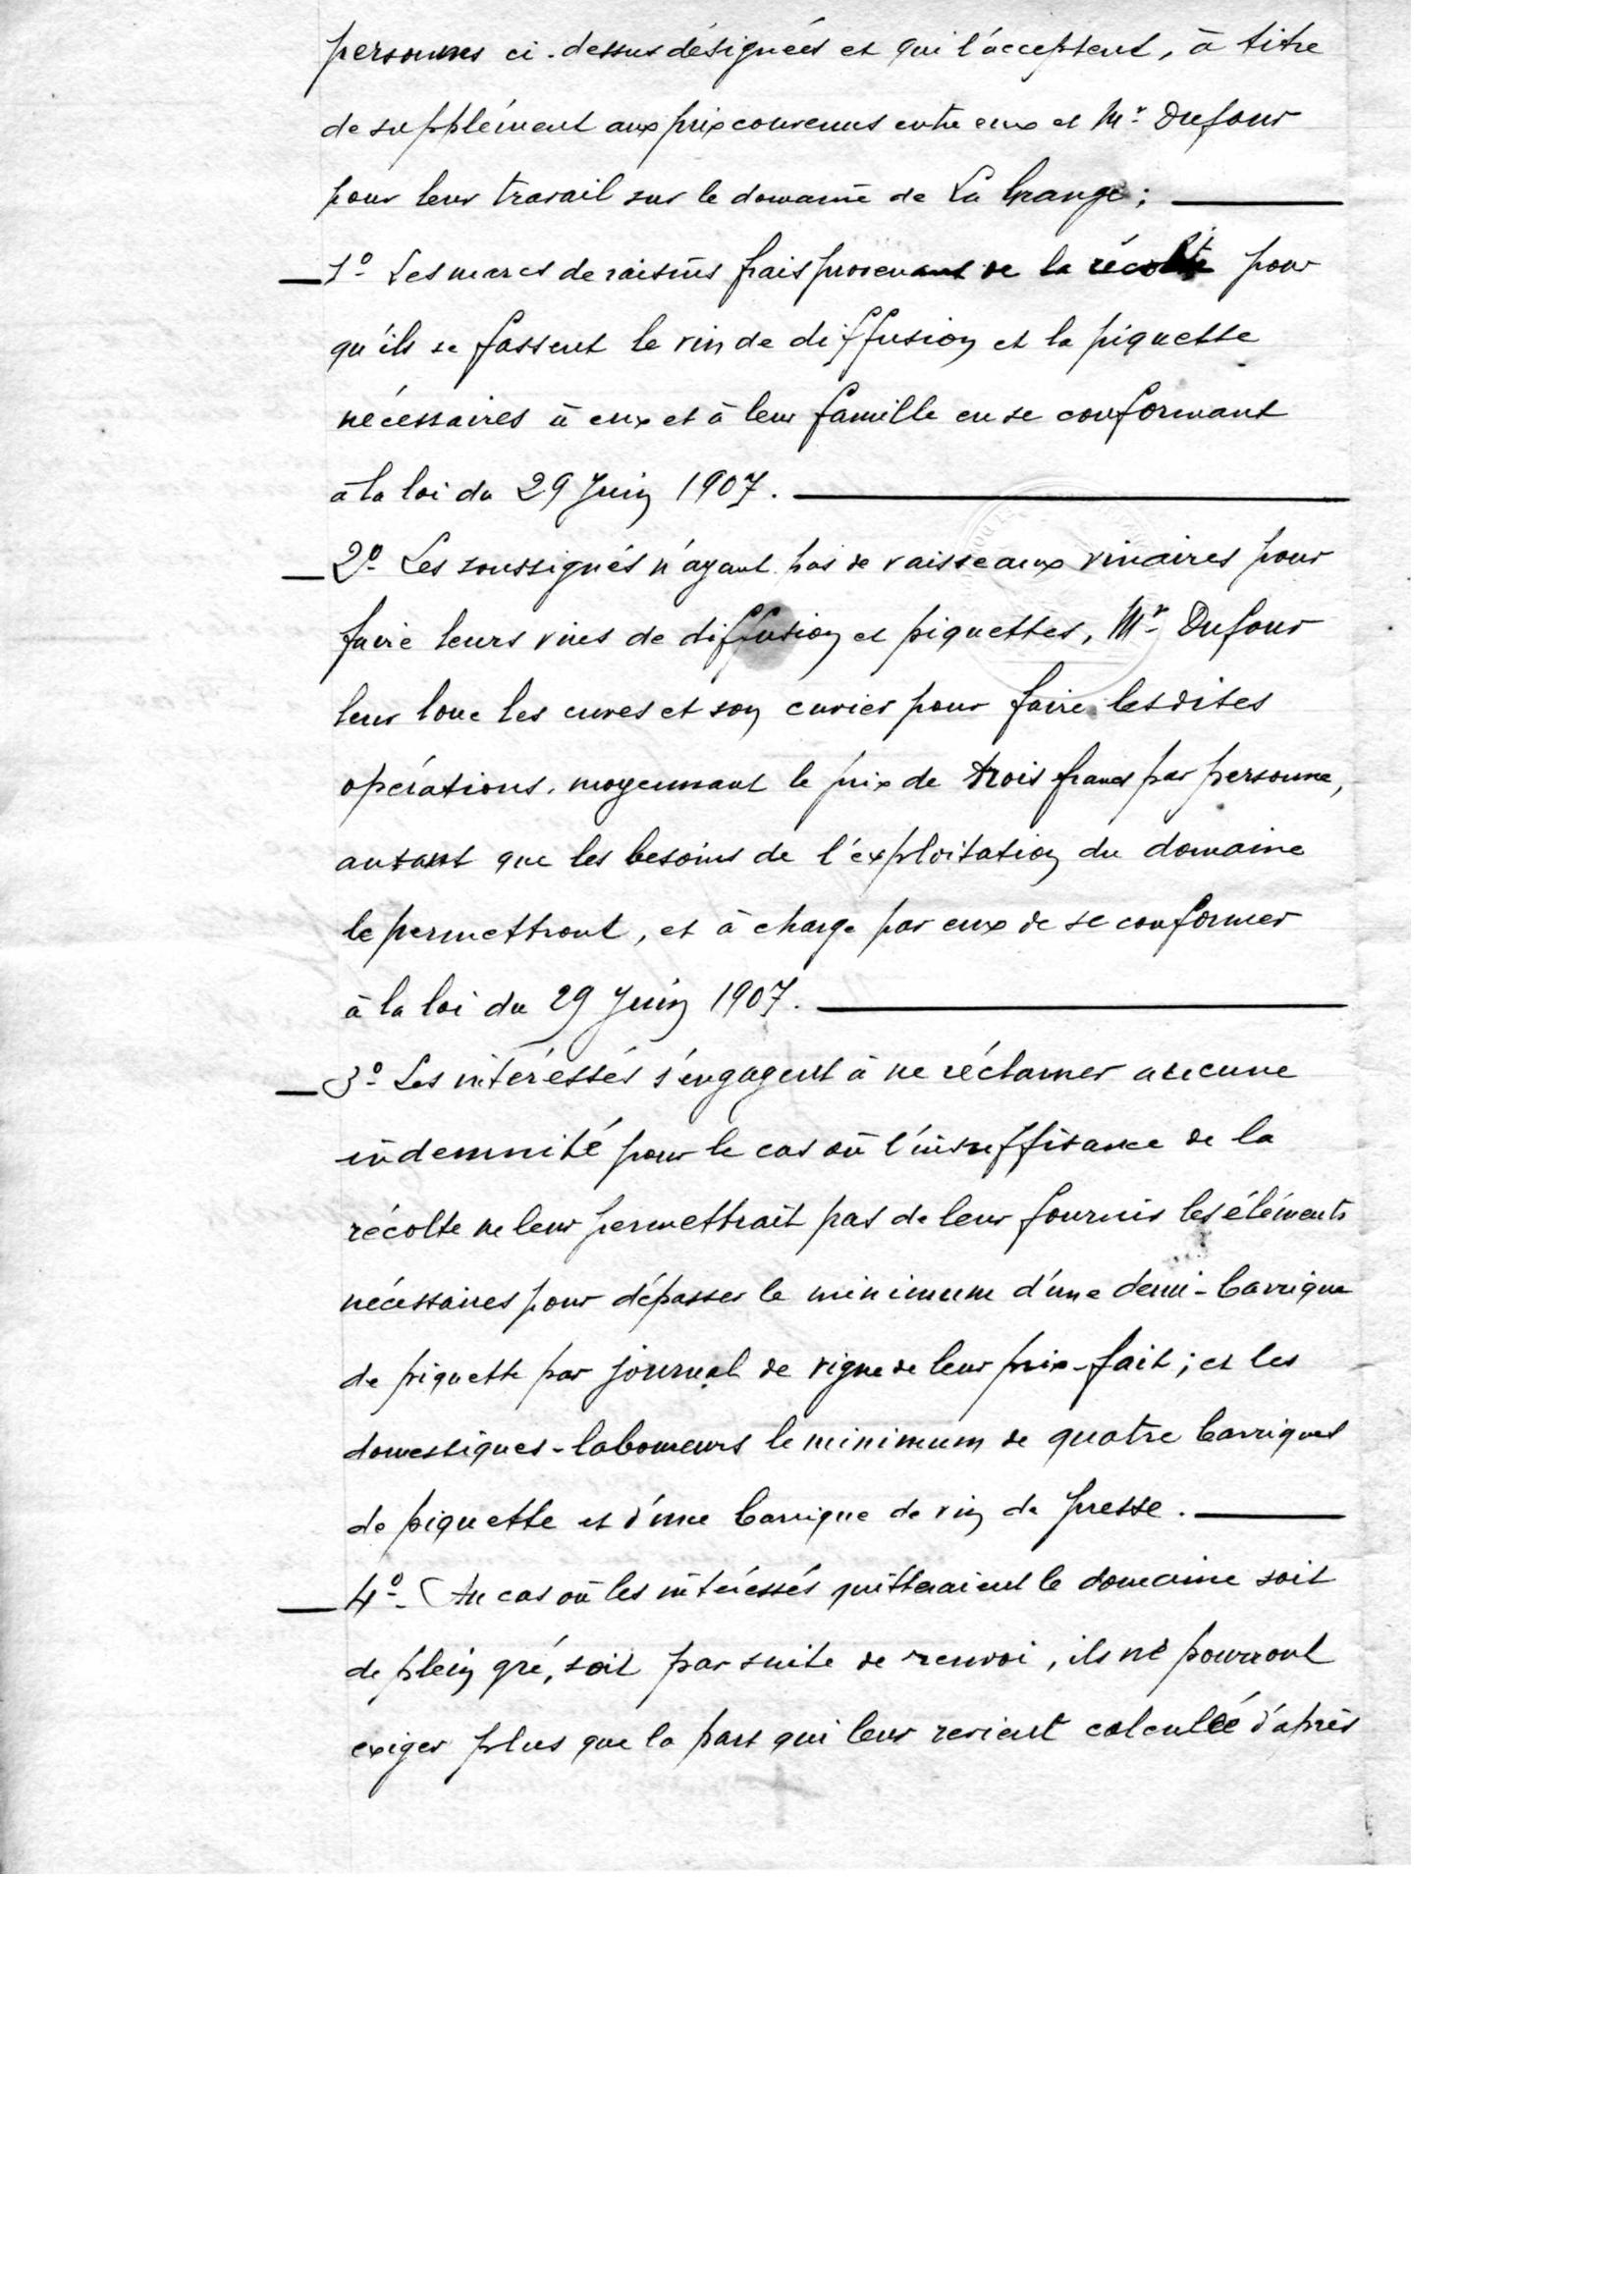 personnes ci-dessus désignées et qui l'acceptent, à titre
de supplément aux prix convenus entre eux et Mr Dufour
pour leur travail sur le domaine de La Grange ;
1º Les marcs de raisins frais provenant de la récolte pour
qu'ils se fassent le vin de diffusion et la piquette
nécessaires à eux et à leur famille en se conformant
à la loi du 29 Juin 1907.
2º Les soussignés n'ayant pas de vaisseaux vinaires pour
faire leurs vins de diffusion et piquettes, Mr Dufour
leur loue les cuves et son cuvier pour faire lesdites
opérations, moyennant le prix de trois francs par personne,
autant que les besoins de l'exploitation du domaine
le permettront, et à charge par eux de se conformer
à la loi du 29 Juin 1907.
3º Les intéressés s'engagent à ne réclamer aucune
indemnité pour le cas où l'insuffisance de la
récolte ne leur permettrait pas de leur fournir les éléments
nécessaires pour dépasser le minimum d'une demi-barrique
de piquette par journal de vigne de leur prix-fait ; et les
domestiques-laboureurs le minimum de quatre barriques
de piquette et d'une barrique de vin de presse.
4º Au cas où les intéressés quitteraient le domaine soit
de plein gré, soit par suite de renvoi, ils ne pourront
exiger plus que la part qui leur revient calculée d'après